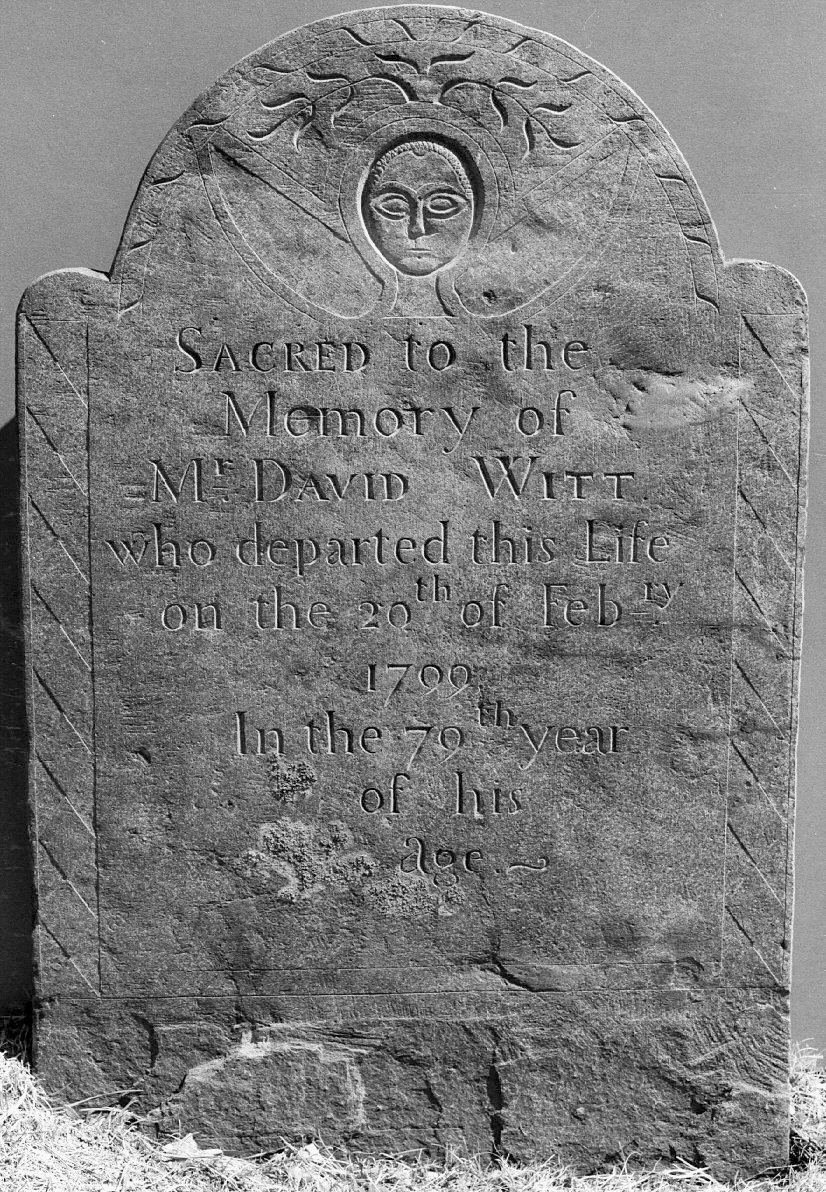 SACRED to the
Memory of
Mr DAVID WITT.
who departed this Life
on the 20th of Febry
1799
In the 79th year
of his
age.~